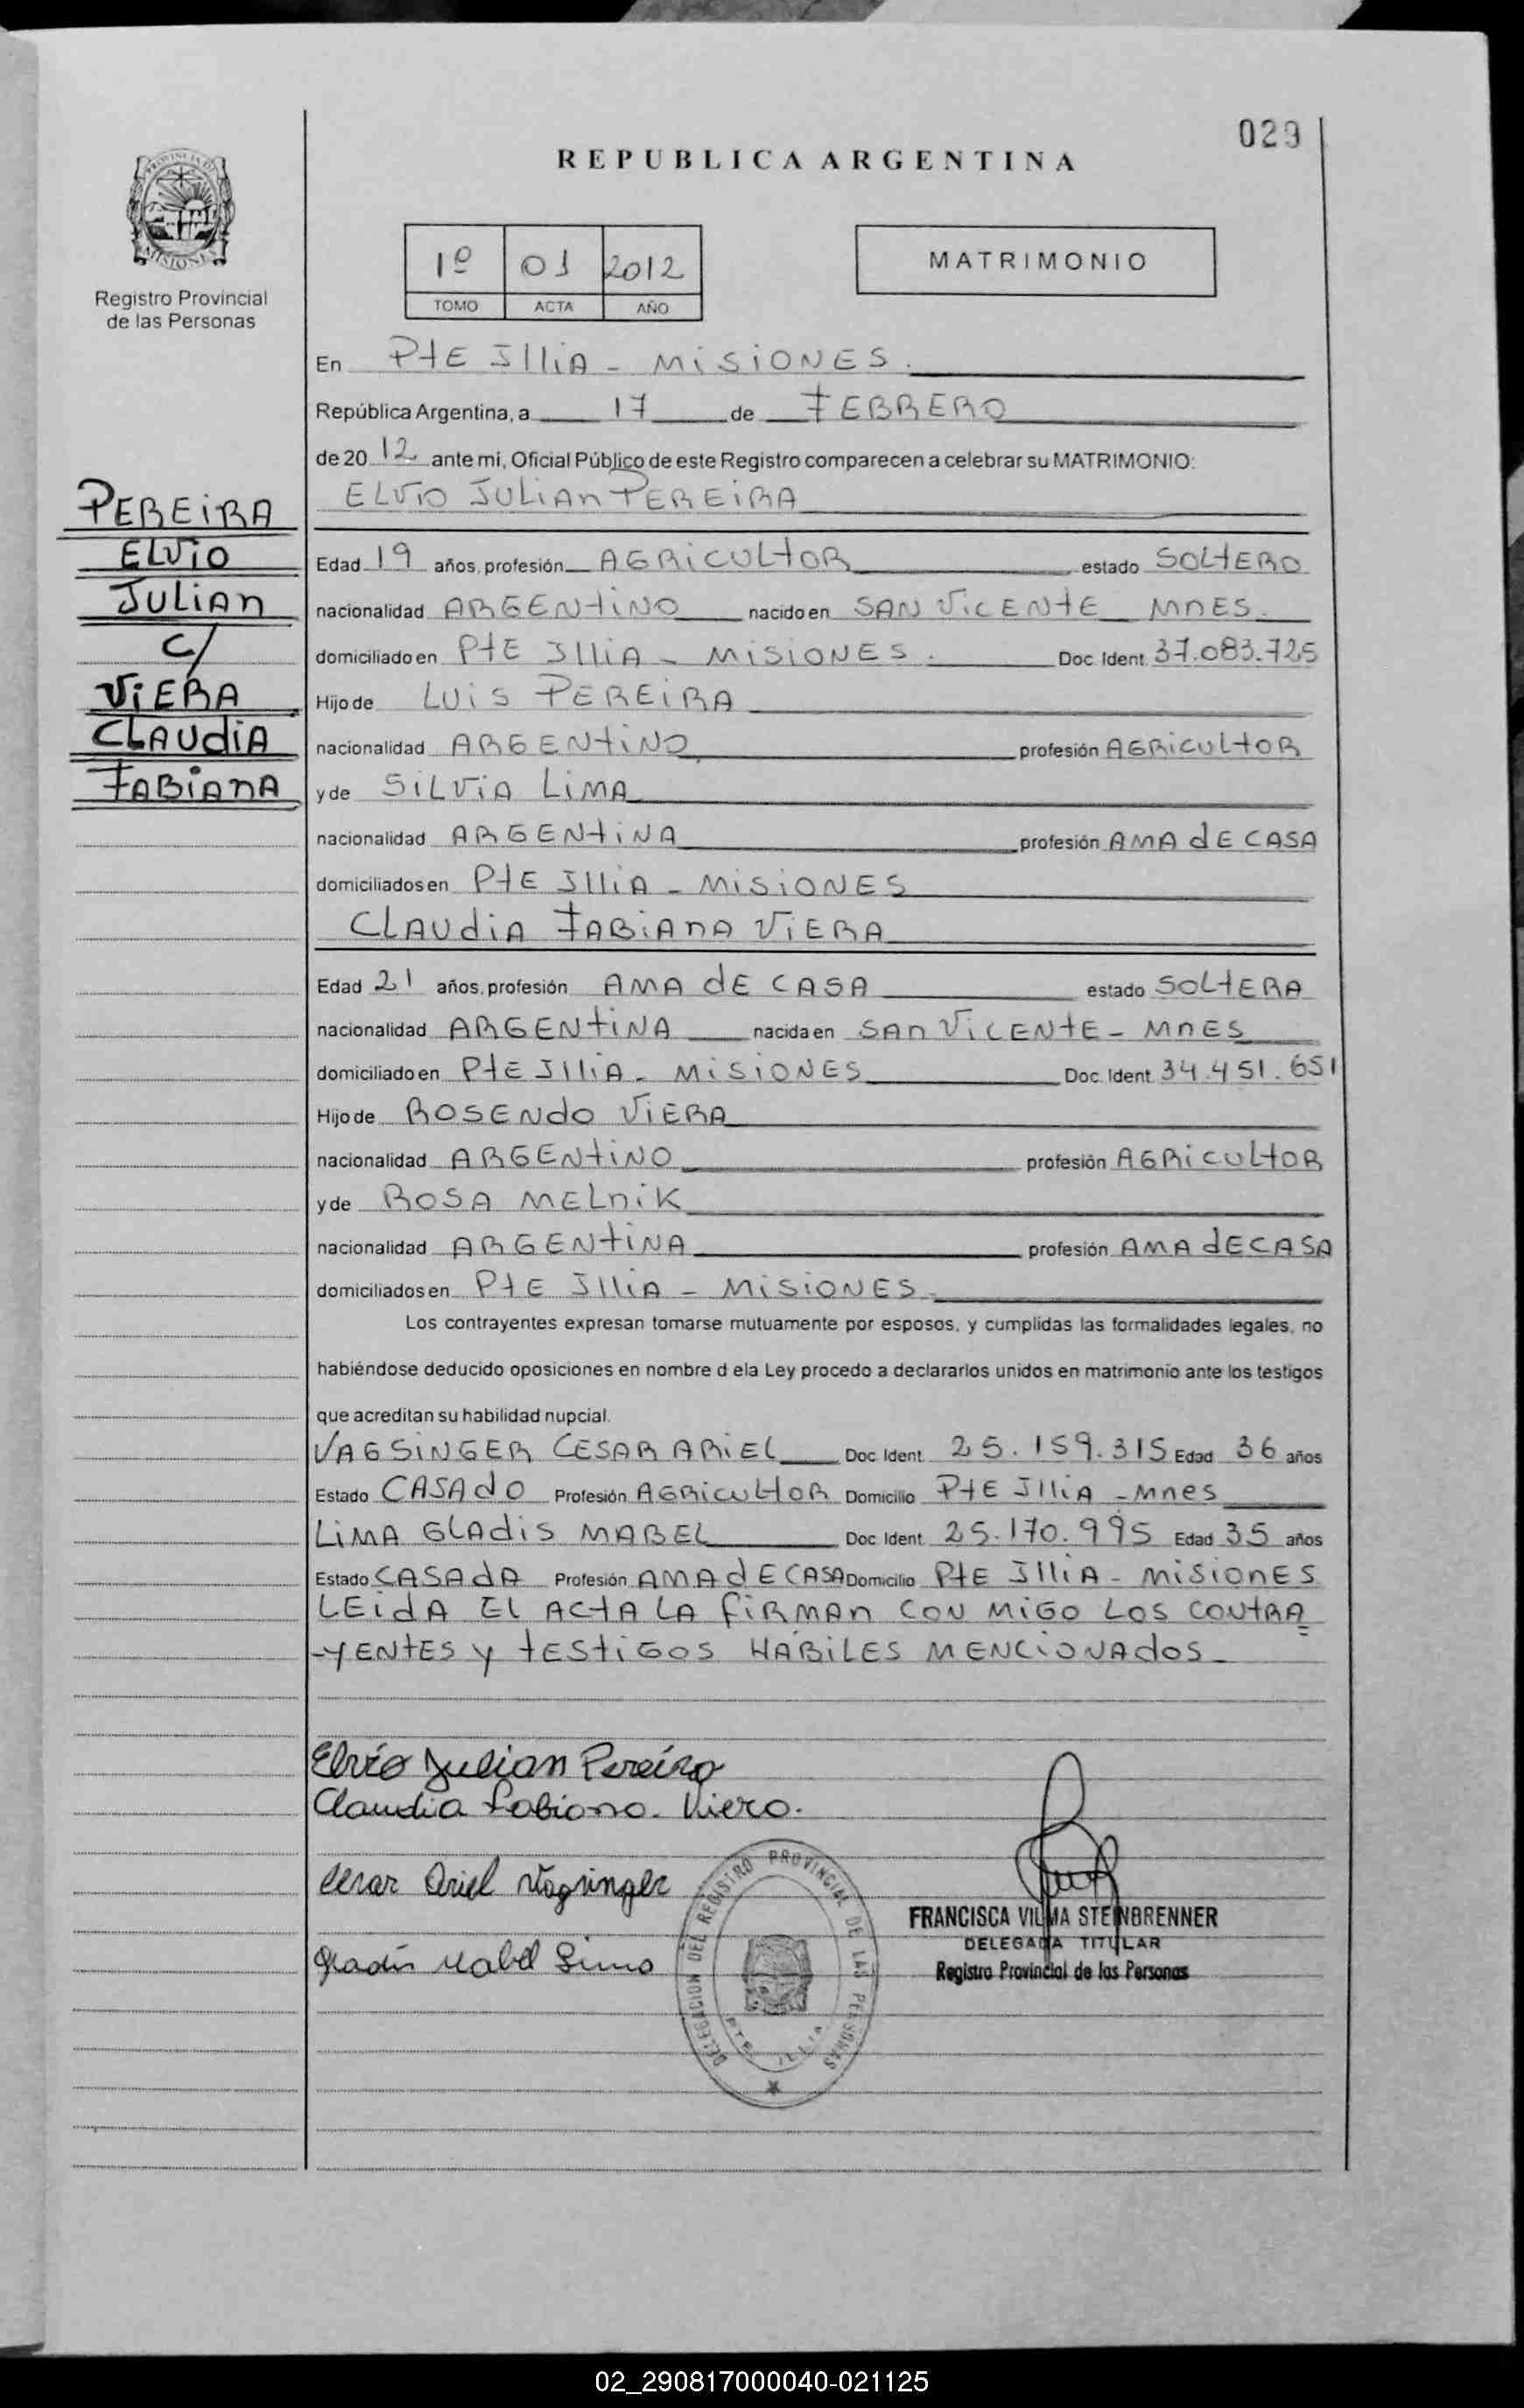 029
REPUBLICA ARGENTINA
PROVINCIA DE
MISIONES
Registro Provincial
de las Personas
1º 01 2012
TOMO ACTA AÑO
MATRIMONIO
En PtE IlliA - MISIONES.
República Argentina, a 17 de FEBRERO
de 20 12 ante mi, Oficial Público de este Registro comparecen a celebrar su MATRIMONIO:
ELVIO JULIAN PEREIRA
PEREIRA
ELVIO
JULIAN
c/
VIERA
CLAUDIA
FABIANA
Edad 19 años, profesión AGRICULTOR estado SOLTERO
nacionalidad ARGENTINO nacido en SAN VICENTE MNES.
domiciliado en PtE IlliA - MISIONES. Doc. Ident. 37.083.725
Hijo de LUIS PEREIRA
nacionalidad ARGENTINO profesión AGRICULTOR
y de SILVIA LIMA
nacionalidad ARGENTINA profesión AMA dE CASA
domiciliados en PtE IlliA - MISIONES
CLAUDIA FABIANA VIERA
Edad 21 años, profesión AMA dE CASA estado SOLTERA
nacionalidad ARGENTINA nacida en SAN VICENTE - MNES
domiciliado en PtE IlliA - MISIONES Doc. Ident. 34.451.651
Hijo de ROSENDO VIERA
nacionalidad ARGENTINO profesión AGRICULTOR
y de ROSA MELNIK
nacionalidad ARGENTINA profesión AMA dECASA
domiciliados en PtE IlliA - MISIONES -
Los contrayentes expresan tomarse mutuamente por esposos, y cumplidas las formalidades legales, no
habiéndose deducido oposiciones en nombre d ela Ley procedo a declararlos unidos en matrimonio ante los testigos
que acreditan su habilidad nupcial.
VAGSINGER CESAR ARIEL Doc. Ident. 25.159.315 Edad 36 años
Estado CASADO Profesión AGRICULTOR Domicilio PtE IlliA - Mnes
LIMA GLADIS MABEL Doc. Ident. 25.170.995 Edad 35 años
Estado CASADA Profesión AMA dE CASA Domicilio PtE IlliA - MISIONES
LEIDA EL ACTA LA FIRMAN CON MIGO LOS CONTRA=
-YENTES y TESTIGOS HABILES MENCIONADOS -
Elvio Julian Pereira
Claudia Fabiana. Viera.
Cesar Ariel Vagsinger
Gladis Mabel Lima
DELEGACION DEL REGISTRO PROVINCIAL DE LAS PERSONAS
PTE. ILLIA
FRANCISCA VILMA STEINBRENNER
DELEGADA TITULAR
Registro Provincial de las Personas
02_290817000040-021125